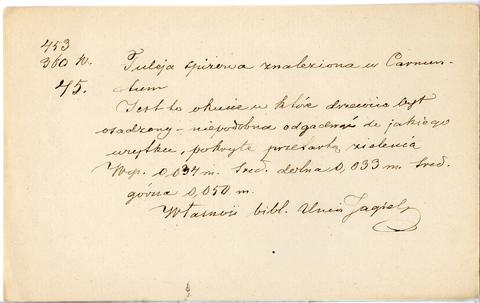 453
360 N.
45.
Tuleja spiżowa znaleziona w Carnun-
tum
Jest to okucie w które drzewice był
osadzony – niepodobna odgadnąć do jakiego
użytku, pokryte prześliczną zielenią
Wys. 0,037 m. Śred. dolna 0,033 m. Śred.
górna 0,050 m.
Własność bibl. Uniw. Jagiel.